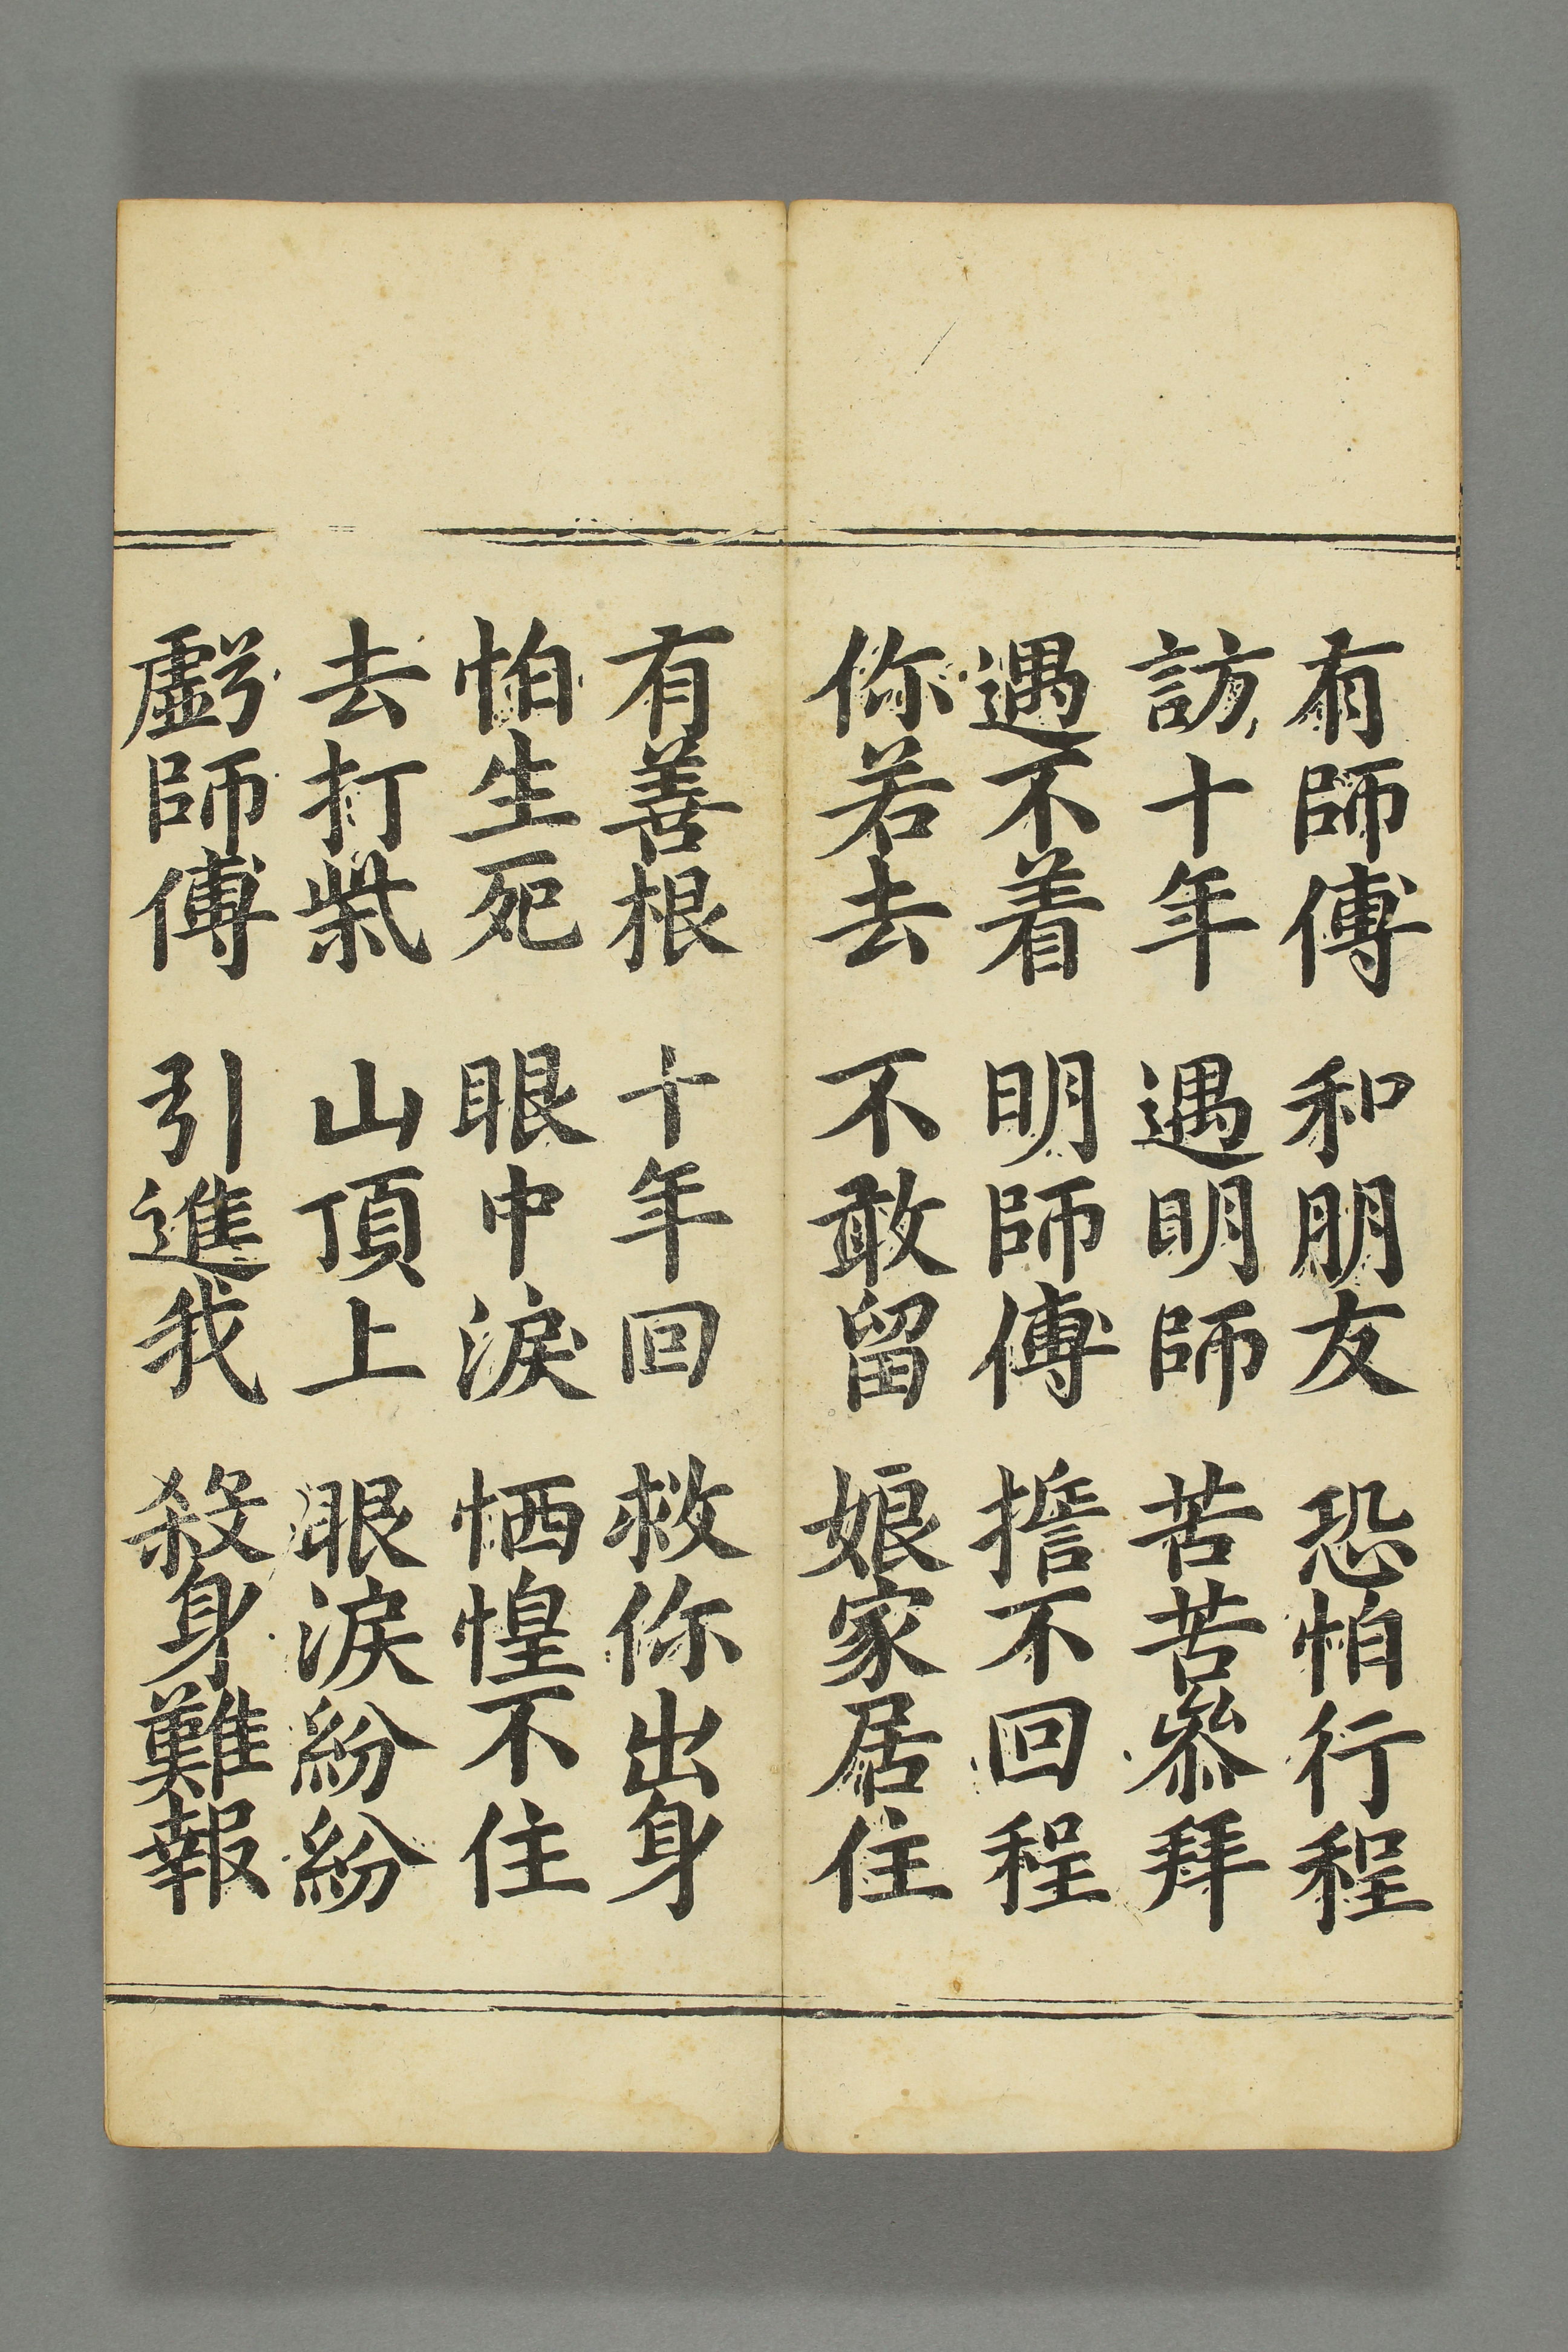 有師傅 和朋友 恐怕行程
訪十年 遇明師 苦苦叅拜
遇不着 明師傅 擔不回程
你若去 不敢留 娘家居住
有善根 十年回 救你出身
怕生死 眼中淚 恓惶不住
去打柴 山頂上 眼淚紛紛
虧師傅 引進我 殺身難報